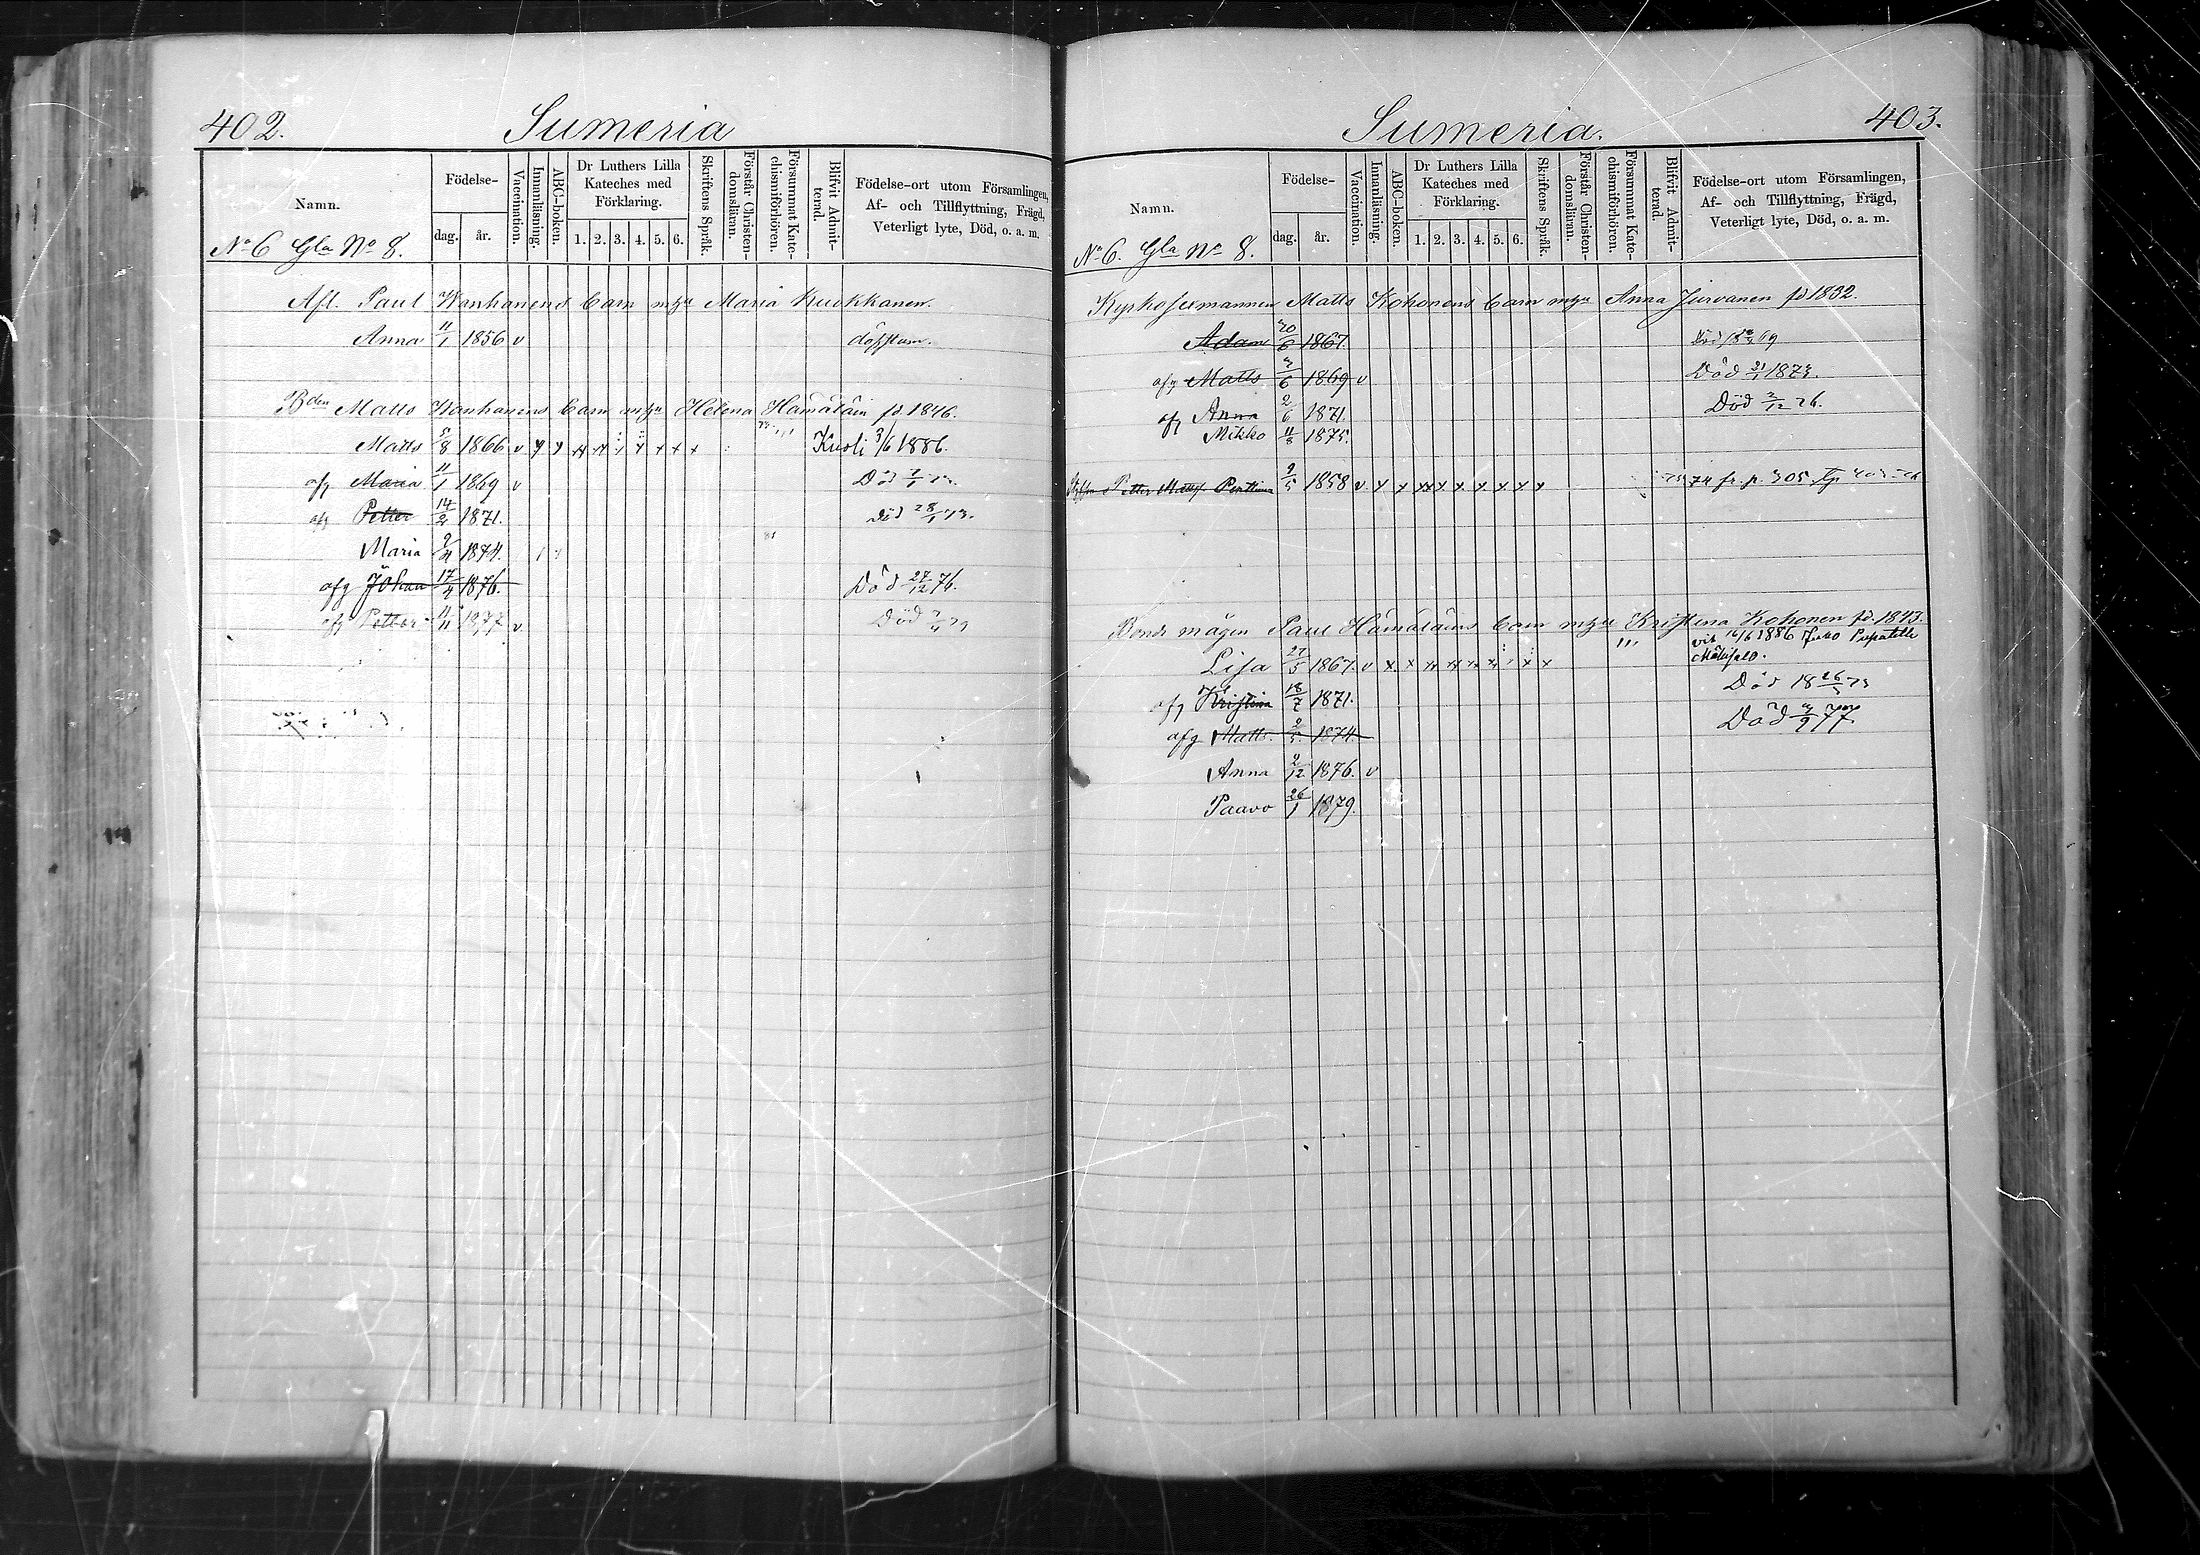 402.
Sumeria
Namn.
Födelse-
dag.
år.
Vaccination.
Innanläsning.
ABC-boken.
Dr Luthers Lilla
Kateches med
Förklaring.
1. 2. 3. 4. 5. 6.
Skriftens Språk.
Förstår Christen-
domsläran.
Försummat Kate-
chismiförhören.
Blifvit Admit-
terad.
Födelse-ort utom Församlingen,
Af- och Tillflyttning, Frägd,
Veterligt lyte, Död, o. a. m.
No 6 Gla No 8.
Afl. Paul Wanhanens barn m Maria Kuokkanen.
Anna 11/1 1856 v döfstum.
Bden Matts Wanhanens barn m Helena Hämäläin fd. 1846.
Matts 5/8 1866 v Kuoli 3/6 1886.
afg Maria 11/1 1869 v Död
afg Petter 14/2 1871. död 28/1 73.
Maria 1874.
afg Johan 17/4 1876. Död 27/12 76.
afg Petter 11/11 1877 v Död
403.
Sumeria.
Namn.
Födelse-
dag.
år.
Vaccination.
Innanläsning.
ABC-boken.
Dr Luthers Lilla
Kateches med
Förklaring.
1. 2. 3. 4. 5. 6.
Skriftens Språk.
Förstår Christen-
domsläran.
Försummat Kate-
chismiförhören.
Blifvit Admit-
terad.
Födelse-ort utom Församlingen,
Af- och Tillflyttning, Frägd,
Veterligt lyte, Död, o. a. m.
No 6. Gla No 8.
Matts Kohonens barn m Anna Jurvanen fd 1832.
Adam 20/6 1867.
afg Matts 1869 v Död 1873.
afg Anna 2/6 1871. Död 2/12 76.
Mikko 11/8 1875.
Petter Matts. Penttinen 9/5 1858 v 74 fr. p. 305.
Bonde mågen Paul Hämäläins barn m Kristina Kohonen fd. 1843.
Lisa 27/5 1867. v vih 16/6 1886
afg Kristina 18/7 1871. Död 18
afg Matts. 1874. Död 77.
Anna 2/12 1876. v
Paavo 26/1 1879.